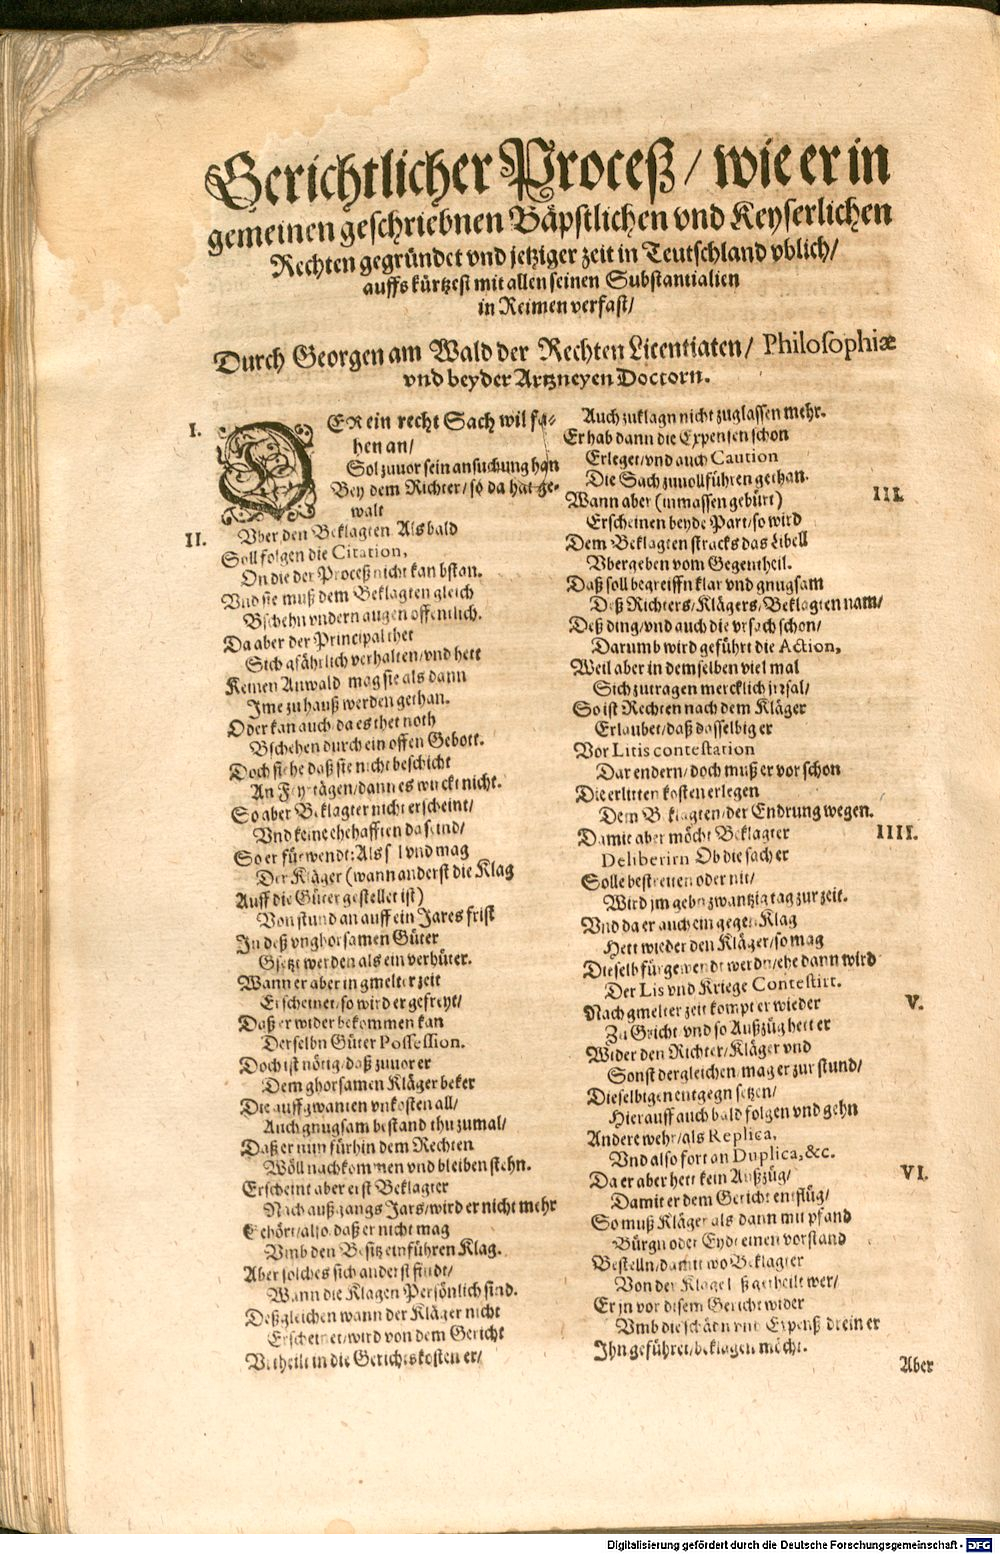 Gerichtlicher Proceß / wie er in
gemeinen geschriebnen Bäpstlichen vnd Keyserlichen
Rechten gegründet vnd jetziger zeit in Teutschland vblich/
auffs kürtzest mit allen seinen Substantialien
in Reimen verfast/
Durch Georgen am Wald der Rechten Licentiaten/ Philosophiæ
vnd beyder Artzneyen Doctorn.
I.
DER ein recht Sach wil fa-
hen an/
Sol zuuor sein ansuchung han
Bey dem Richter/ so da hat ge-
walt
II.
Vber den Beklagten Alsbald
Soll folgen die Citation,
On die der Proceß nicht kan bstan.
Vnd sie muß dem Beklagten gleich
Bschehn vndern augen offentlich.
Da aber der Principal thet
Sich gfährlich verhalten/vnd hett
Keinen Anwald mag sie als dann
Jme zu hauß werden gethan.
Oder kan auch/da es thet noth
Bschehen durch ein offen Gebott.
Doch siehe daß sie nicht beschicht
An Feyrtägen/dann es würckt nicht.
So aber Beklagter nicht erscheint/
Vnd keine ehehafften da seind/
So er fürwendt: Als vnd mag
Der Kläger (wann anderst die Klag
Auff die Güter gestellet ist)
Von stund an auff ein Jares frist
In deß vnghorsamen Güter
Gsetzt werden als ein verhüter.
Wann er aber in gmelter zeit
Erscheinet/so wird er gefreyt/
Daß er wider bekommen kan
Derselbn Güter Possession.
Doch ist nötig/daß zuuor er
Dem ghorsamen Kläger beker
Die auffgwanten vnkosten all/
Auch gnugsam bestand thu zumal/
Daß er nun fürhin dem Rechten
Wöll nachkommen vnd bleiben stehn.
Erscheint aber erst Beklagter
Nach außgangs Jars/wird er nicht mehr
Gehört/also/daß er nicht mag
Vmb den Besitz einführen Klag.
Aber solches sich anderst findt/
Wann die Klagen Persönlich sind.
Deßgleichen wann der Kläger nicht
Erscheinet/wird von dem Gericht
Vrtheilt in die Gerichtskosten er/
Auch zuklagn nicht zuglassen mehr.
Er hab dann die Expensen schon
Erleget/vnd auch Caution
Die Sach zuuollführen gethan.
III.
Wann aber (inmassen gebürt)
Erscheinen beyde Part/so wird
Dem Beklagten stracks das Libell
Vbergeben vom Gegentheil.
Daß soll begreiffn klar vnd gnugsam
Deß Richters/Klägers/Beklagten nam/
Deß ding/vnd auch die vrsach schon/
Darumb wird geführt die Action,
Weil aber in demselben viel mal
Sich zutragen mercklich jrrsal/
So ist Rechten nach dem Kläger
Erlaubet/daß dasselbig er
Vor Litis contestation
Dar endern/doch muß er vor schon
Die erlitten kosten erlegen
Dem Beklagten/der Endrung wegen.
IIII.
Damit aber möcht Beklagter
Deliberirn Ob die sach er
Solle bestreiten oder nit/
Wird jm gebn zwantzig tag zur zeit.
Vnd da er auch ein gegen Klag
Hett wieder den Kläger/so mag
Dieselb fürgewendt werdn/ehe dann wird
Der Lis vnd Kriege Contestirt.
V.
Nach gmelter zeit kompt er wieder
Zu Gricht vnd so Außzüg hett er
Wider den Richter/Kläger vnd
Sonst dergleichen/mag er zur stund/
Dieselbigen entgegn setzen/
Hierauff auch bald folgen vnd gehn
Andere wehr/als Replica,
Vnd also fort an Duplica, &c.
VI.
Da er aber hett kein Außzüg/
Damit er dem Gericht entflüg/
So muß Kläger als dann mit pfand
Bürgn oder Eydt einen vorstand
Bestelln/damit wo Beklagter
Von der Klage ß getheilt wer/
Er jn vor disem Gericht wider
Vmb die schädn vnd Expenß drein er
Jhn geführet/beklagen möcht.
Aber
Digitalisierung gefördert durch die Deutsche Forschungsgemeinschaft - DFG